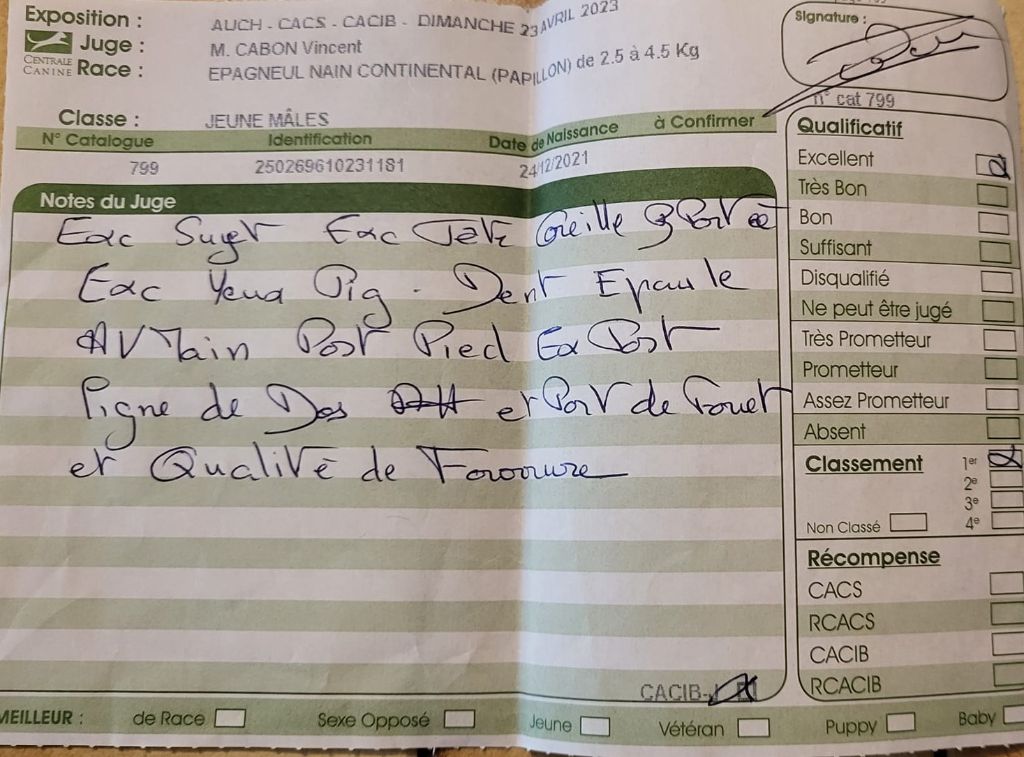 Exposition : AUCH - CACS - CACIB - DIMANCHE 23 AVRIL 2023
Juge : M. CABON Vincent
CENTRALE CANINE
Race : EPAGNEUL NAIN CONTINENTAL (PAPILLON) de 2.5 à 4.5 Kg
Signature :
n° cat 799
Classe : JEUNE MÂLES
N° Catalogue Identification Date de Naissance à Confirmer
799 250269610231181 24/12/2021
Notes du Juge
Exc Sujet Exc Tête Oreille Porté
Exc Yeux Pig. Dent Epaule
AV Main Post Pied Ex Post
Ligne de Dos et Port de Fouet
et Qualité de Fourrure
CACIB-J
Qualificatif
Excellent
Très Bon
Bon
Suffisant
Disqualifié
Ne peut être jugé
Très Prometteur
Prometteur
Assez Prometteur
Absent
Classement 1er
2e
3e
Non Classé 4e
Récompense
CACS
RCACS
CACIB
RCACIB
MEILLEUR : de Race Sexe Opposé Jeune Vétéran Puppy Baby